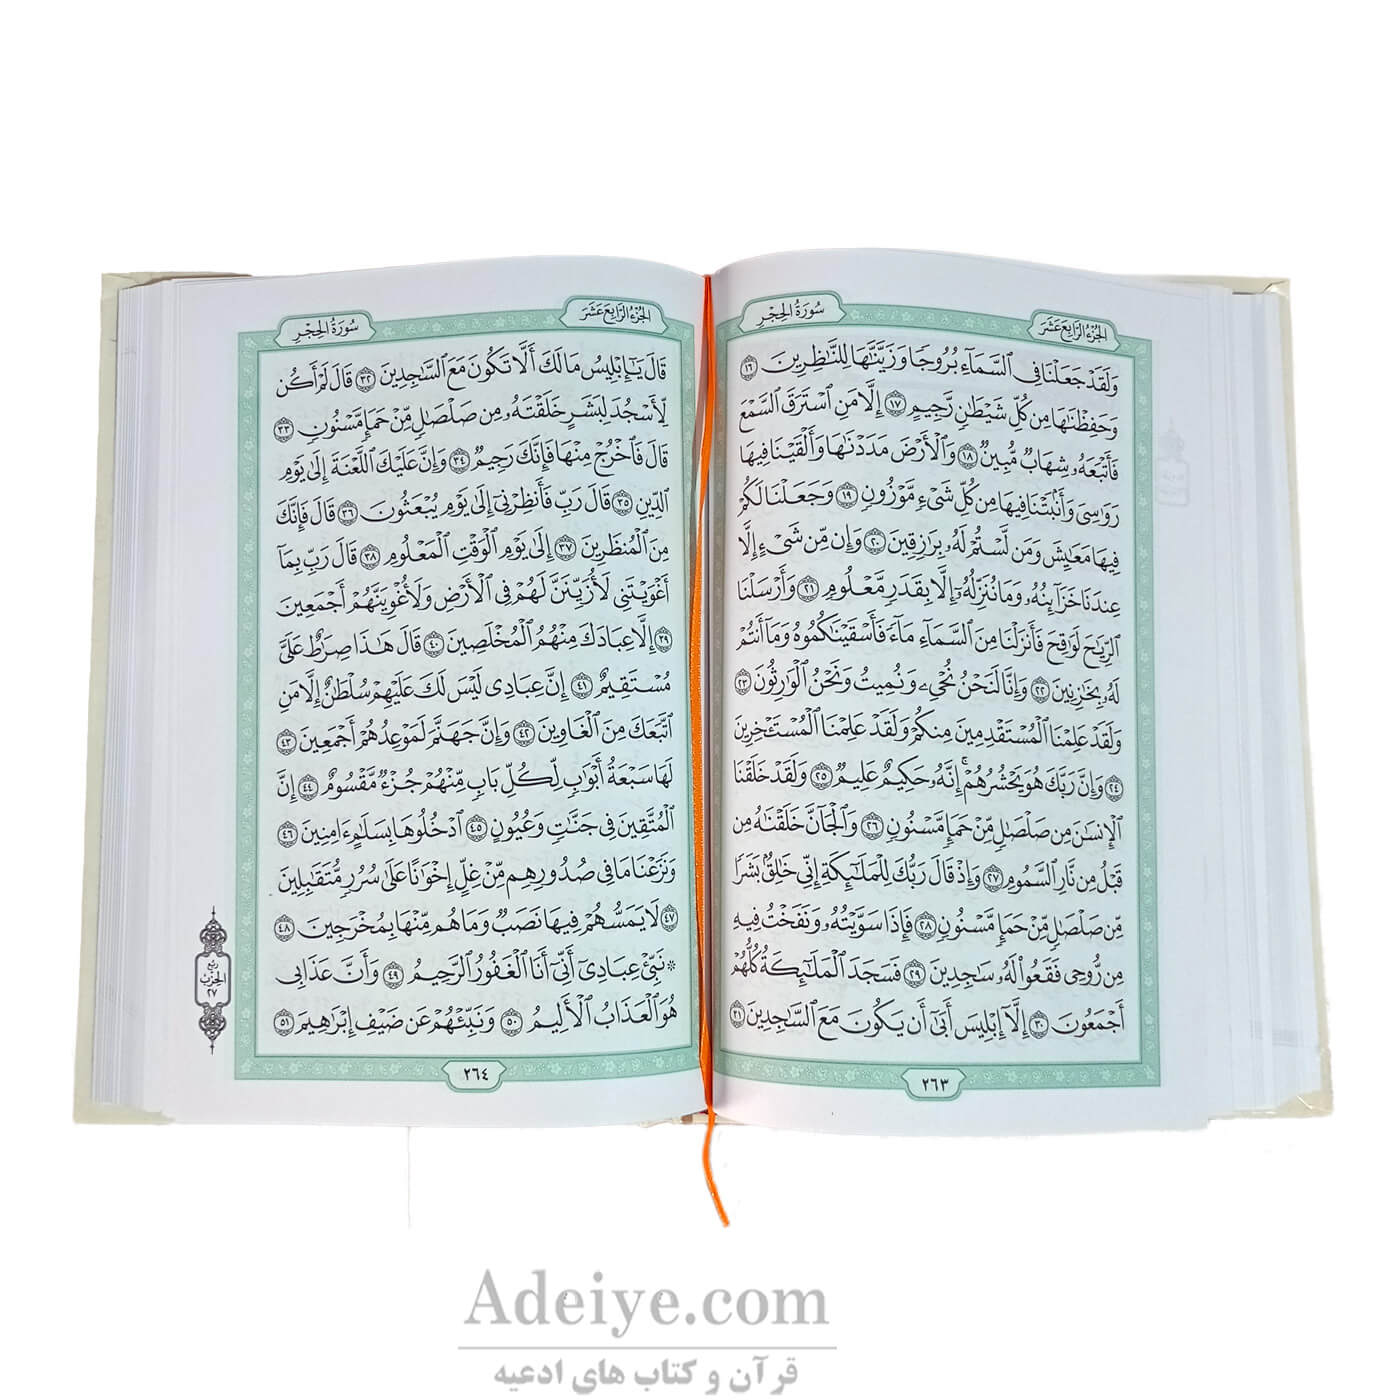 الجزء الرابع عشر
سورة الحجر
وَلَقَدْ جَعَلْنَا فِي السَّمَاءِ بُرُوجًا وَزَيَّنَّاهَا لِلنَّاظِرِينَ ١٦
وَحَفِظْنَاهَا مِن كُلِّ شَيْطَانٍ رَّجِيمٍ ١٧ إِلَّا مَنِ اسْتَرَقَ السَّمْعَ
فَأَتْبَعَهُ شِهَابٌ مُّبِينٌ ١٨ وَالْأَرْضَ مَدَدْنَاهَا وَأَلْقَيْنَا فِيهَا
رَوَاسِيَ وَأَنبَتْنَا فِيهَا مِن كُلِّ شَيْءٍ مَّوْزُونٍ ١٩ وَجَعَلْنَا لَكُمْ
فِيهَا مَعَايِشَ وَمَن لَّسْتُمْ لَهُ بِرَازِقِينَ ٢٠ وَإِن مِّن شَيْءٍ إِلَّا
عِندَنَا خَزَائِنُهُ وَمَا نُنَزِّلُهُ إِلَّا بِقَدَرٍ مَّعْلُومٍ ٢١ وَأَرْسَلْنَا
الرِّيَاحَ لَوَاقِحَ فَأَنزَلْنَا مِنَ السَّمَاءِ مَاءً فَأَسْقَيْنَاكُمُوهُ وَمَا أَنتُمْ
لَهُ بِخَازِنِينَ ٢٢ وَإِنَّا لَنَحْنُ نُحْيِي وَنُمِيتُ وَنَحْنُ الْوَارِثُونَ ٢٣
وَلَقَدْ عَلِمْنَا الْمُسْتَقْدِمِينَ مِنكُمْ وَلَقَدْ عَلِمْنَا الْمُسْتَأْخِرِينَ
٢٤ وَإِنَّ رَبَّكَ هُوَ يَحْشُرُهُمْ ۚ إِنَّهُ حَكِيمٌ عَلِيمٌ ٢٥ وَلَقَدْ خَلَقْنَا
الْإِنسَانَ مِن صَلْصَالٍ مِّنْ حَمَإٍ مَّسْنُونٍ ٢٦ وَالْجَانَّ خَلَقْنَاهُ مِن
قَبْلُ مِن نَّارِ السَّمُومِ ٢٧ وَإِذْ قَالَ رَبُّكَ لِلْمَلَائِكَةِ إِنِّي خَالِقٌ بَشَرًا
مِّن صَلْصَالٍ مِّنْ حَمَإٍ مَّسْنُونٍ ٢٨ فَإِذَا سَوَّيْتُهُ وَنَفَخْتُ فِيهِ
مِن رُّوحِي فَقَعُوا لَهُ سَاجِدِينَ ٢٩ فَسَجَدَ الْمَلَائِكَةُ كُلُّهُمْ
أَجْمَعُونَ ٣٠ إِلَّا إِبْلِيسَ أَبَىٰ أَن يَكُونَ مَعَ السَّاجِدِينَ ٣١
٢٦٣
الجزء الرابع عشر
سورة الحجر
قَالَ يَا إِبْلِيسُ مَا لَكَ أَلَّا تَكُونَ مَعَ السَّاجِدِينَ ٣٢ قَالَ لَمْ أَكُن
لِّأَسْجُدَ لِبَشَرٍ خَلَقْتَهُ مِن صَلْصَالٍ مِّنْ حَمَإٍ مَّسْنُونٍ ٣٣
قَالَ فَاخْرُجْ مِنْهَا فَإِنَّكَ رَجِيمٌ ٣٤ وَإِنَّ عَلَيْكَ اللَّعْنَةَ إِلَىٰ يَوْمِ
الدِّينِ ٣٥ قَالَ رَبِّ فَأَنظِرْنِي إِلَىٰ يَوْمِ يُبْعَثُونَ ٣٦ قَالَ فَإِنَّكَ
مِنَ الْمُنظَرِينَ ٣٧ إِلَىٰ يَوْمِ الْوَقْتِ الْمَعْلُومِ ٣٨ قَالَ رَبِّ بِمَا
أَغْوَيْتَنِي لَأُزَيِّنَنَّ لَهُمْ فِي الْأَرْضِ وَلَأُغْوِيَنَّهُمْ أَجْمَعِينَ
٣٩ إِلَّا عِبَادَكَ مِنْهُمُ الْمُخْلَصِينَ ٤٠ قَالَ هَٰذَا صِرَاطٌ عَلَيَّ
مُسْتَقِيمٌ ٤١ إِنَّ عِبَادِي لَيْسَ لَكَ عَلَيْهِمْ سُلْطَانٌ إِلَّا مَنِ
اتَّبَعَكَ مِنَ الْغَاوِينَ ٤٢ وَإِنَّ جَهَنَّمَ لَمَوْعِدُهُمْ أَجْمَعِينَ ٤٣
لَهَا سَبْعَةُ أَبْوَابٍ لِّكُلِّ بَابٍ مِّنْهُمْ جُزْءٌ مَّقْسُومٌ ٤٤ إِنَّ
الْمُتَّقِينَ فِي جَنَّاتٍ وَعُيُونٍ ٤٥ ادْخُلُوهَا بِسَلَامٍ آمِنِينَ ٤٦
وَنَزَعْنَا مَا فِي صُدُورِهِم مِّنْ غِلٍّ إِخْوَانًا عَلَىٰ سُرُرٍ مُّتَقَابِلِينَ
٤٧ لَا يَمَسُّهُمْ فِيهَا نَصَبٌ وَمَا هُم مِّنْهَا بِمُخْرَجِينَ ٤٨
* نَبِّئْ عِبَادِي أَنِّي أَنَا الْغَفُورُ الرَّحِيمُ ٤٩ وَأَنَّ عَذَابِي
هُوَ الْعَذَابُ الْأَلِيمُ ٥٠ وَنَبِّئْهُمْ عَن ضَيْفِ إِبْرَاهِيمَ ٥١
ربع
الحزب
٢٧
٢٦٤
Adeiye.com
قرآن و کتاب های ادعیه